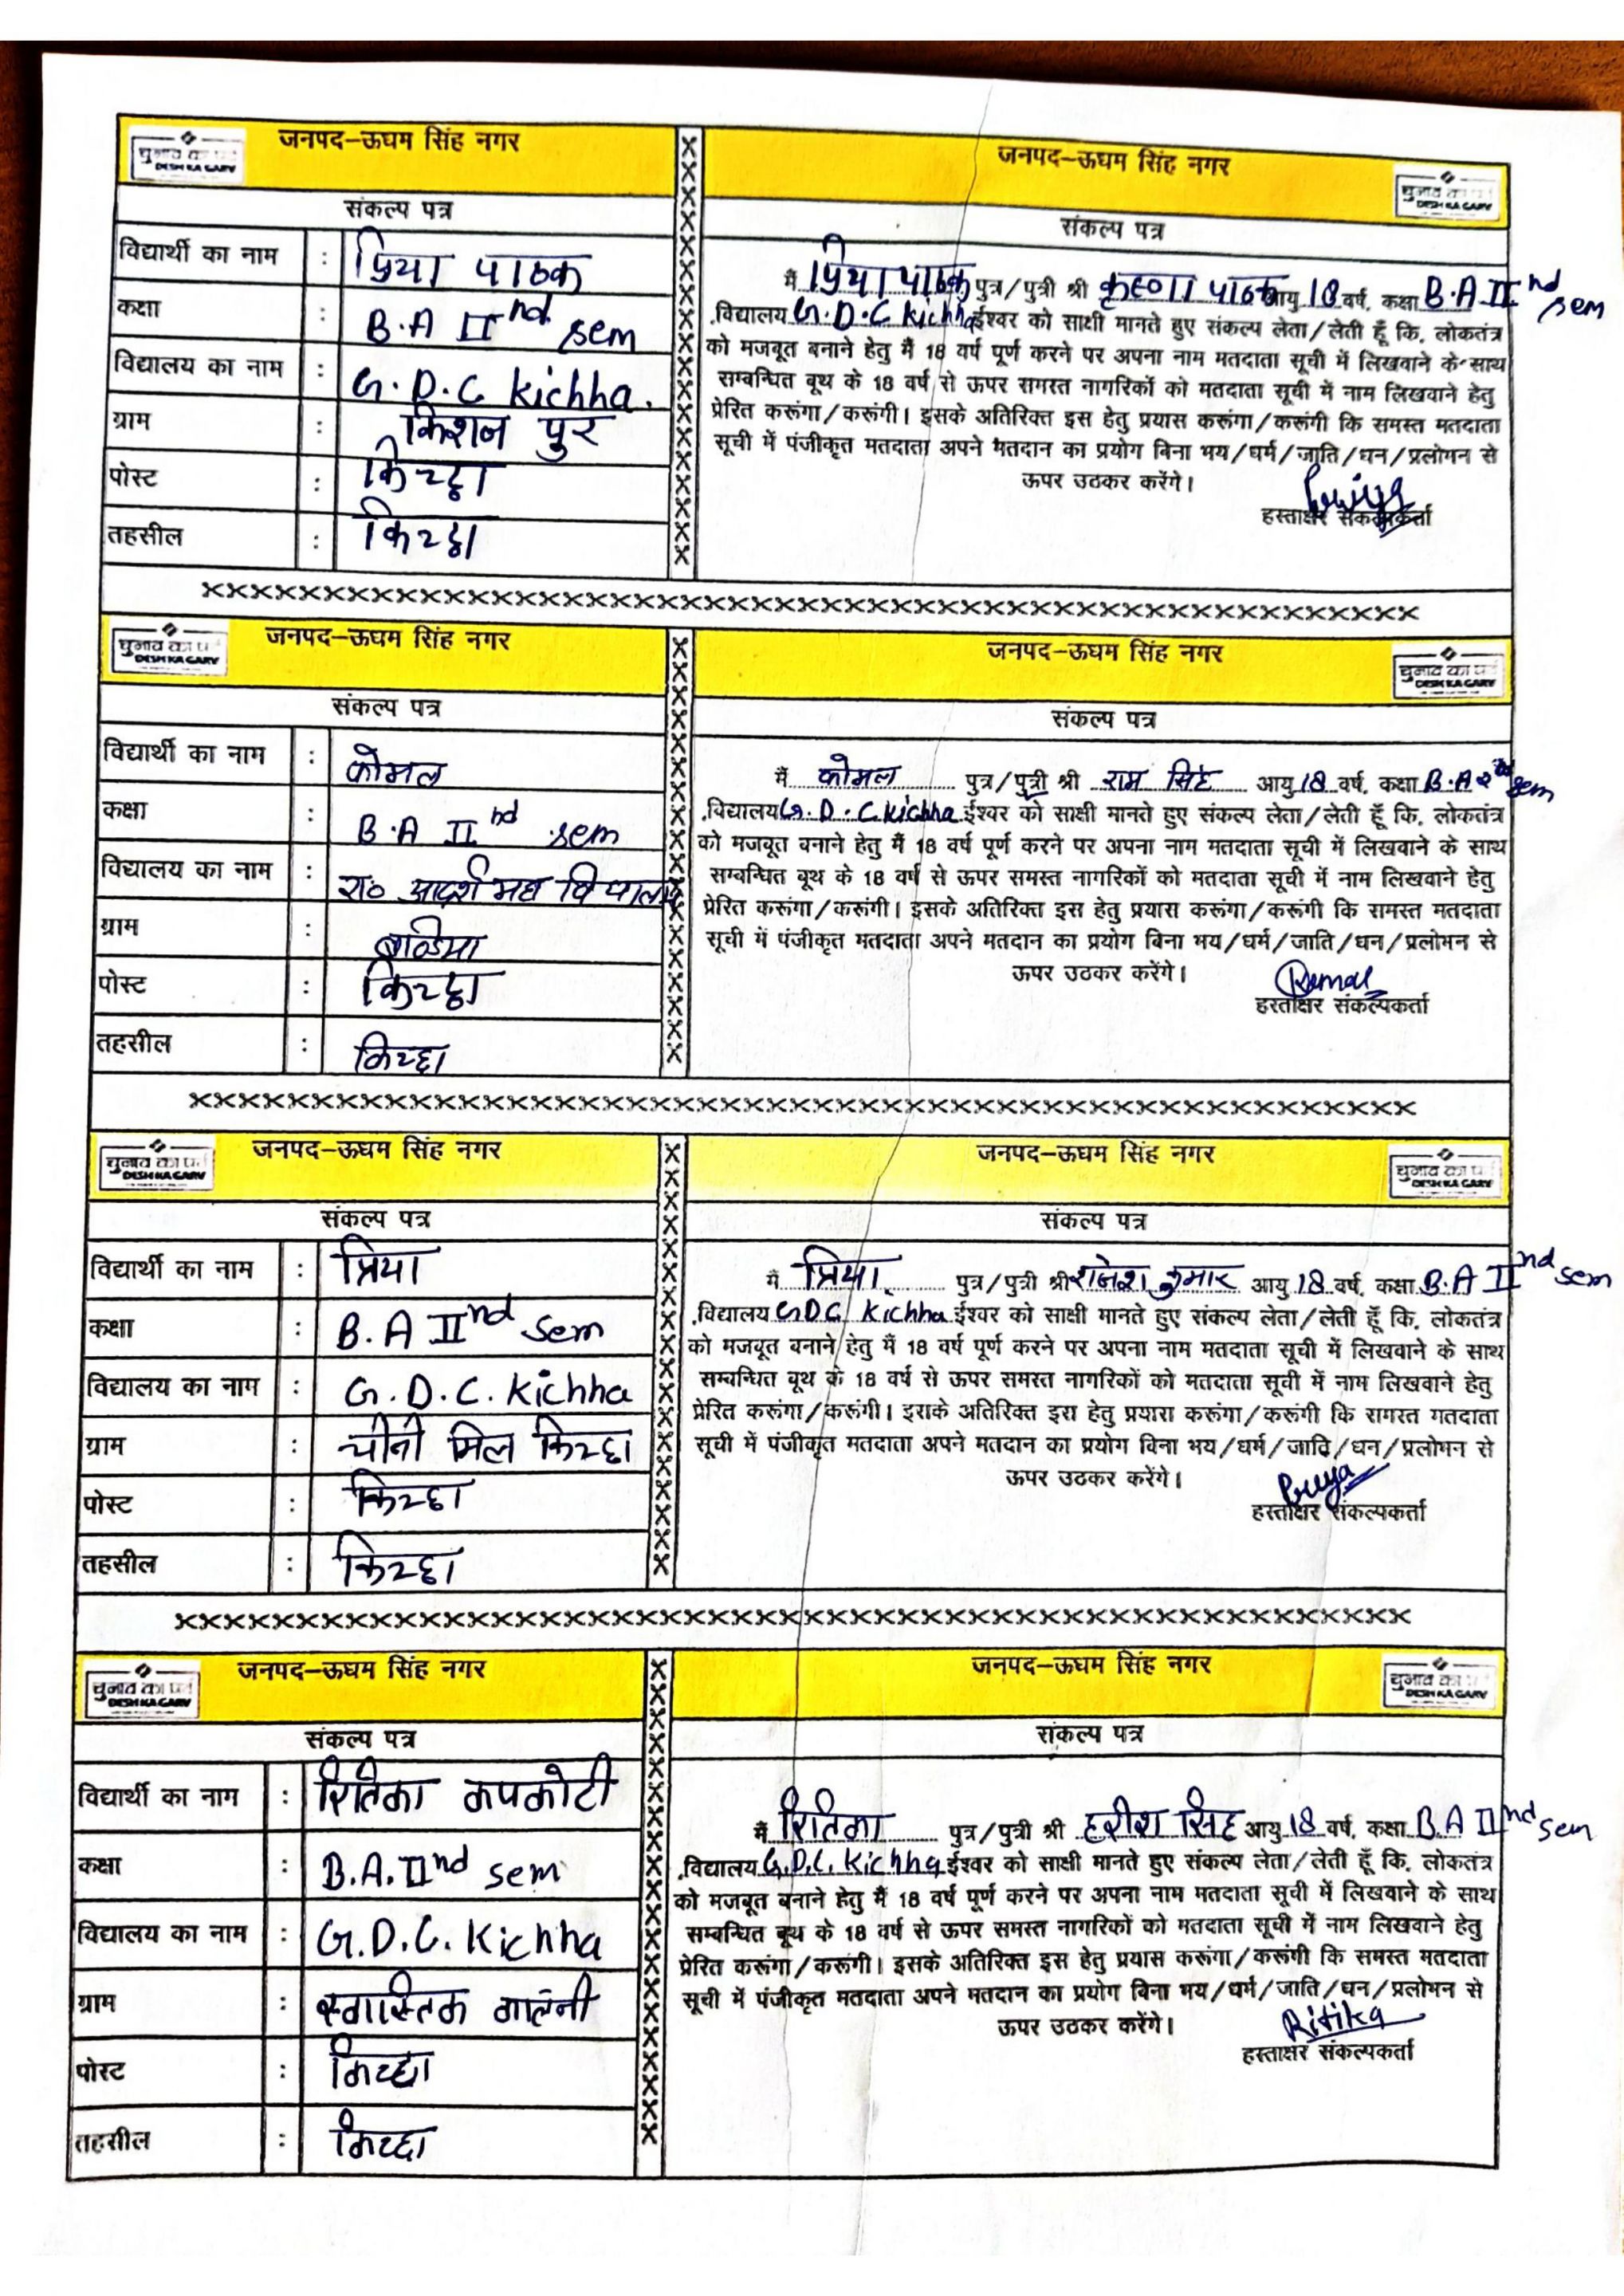 चुनाव का पर्व
DESH KA GARV
जनपद-ऊधम सिंह नगर
संकल्प पत्र
विद्यार्थी का नाम : प्रिया पाठक
कक्षा : B.A IInd sem
विद्यालय का नाम : G.D.C Kichha.
ग्राम : किशन पुर
पोस्ट : किच्छा
तहसील : किच्छा
जनपद-ऊधम सिंह नगर
चुनाव का पर्व
DESH KA GARV
संकल्प पत्र
मैं प्रिया पाठक पुत्र/पुत्री श्री कृष्णा पाठक आयु 18 वर्ष, कक्षा B.A IInd sem
,विद्यालय G.D.C Kichha ईश्वर को साक्षी मानते हुए संकल्प लेता/लेती हूँ कि, लोकतंत्र
को मजबूत बनाने हेतु मैं 18 वर्ष पूर्ण करने पर अपना नाम मतदाता सूची में लिखवाने के साथ
सम्बन्धित बूथ के 18 वर्ष से ऊपर समस्त नागरिकों को मतदाता सूची में नाम लिखवाने हेतु
प्रेरित करूंगा/करूंगी। इसके अतिरिक्त इस हेतु प्रयास करूंगा/करूंगी कि समस्त मतदाता
सूची में पंजीकृत मतदाता अपने मतदान का प्रयोग बिना भय/धर्म/जाति/धन/प्रलोभन से
ऊपर उठकर करेंगे।
Priya
हस्ताक्षर संकल्पकर्ता
XXXXXXXXXXXXXXXXXXXXXXXXXXXXXXXXXXXXXXXXXXXXXXXXXX
चुनाव का पर्व
DESH KA GARV
जनपद-ऊधम सिंह नगर
संकल्प पत्र
विद्यार्थी का नाम : कोमल
कक्षा : B.A IInd sem
विद्यालय का नाम : रा० आदर्श महा विद्यालय
ग्राम :
पोस्ट : किच्छा
तहसील : किच्छा
जनपद-ऊधम सिंह नगर
चुनाव का पर्व
DESH KA GARV
संकल्प पत्र
मैं कोमल पुत्र/पुत्री श्री राम सिंह आयु 18 वर्ष, कक्षा B.A 2nd sem
,विद्यालय G.D.C. Kichha ईश्वर को साक्षी मानते हुए संकल्प लेता/लेती हूँ कि, लोकतंत्र
को मजबूत बनाने हेतु मैं 18 वर्ष पूर्ण करने पर अपना नाम मतदाता सूची में लिखवाने के साथ
सम्बन्धित बूथ के 18 वर्ष से ऊपर समस्त नागरिकों को मतदाता सूची में नाम लिखवाने हेतु
प्रेरित करूंगा/करूंगी। इसके अतिरिक्त इस हेतु प्रयास करूंगा/करूंगी कि समस्त मतदाता
सूची में पंजीकृत मतदाता अपने मतदान का प्रयोग बिना भय/धर्म/जाति/धन/प्रलोभन से
ऊपर उठकर करेंगे।
हस्ताक्षर संकल्पकर्ता
XXXXXXXXXXXXXXXXXXXXXXXXXXXXXXXXXXXXXXXXXXXXXXXXXX
चुनाव का पर्व
DESH KA GARV
जनपद-ऊधम सिंह नगर
संकल्प पत्र
विद्यार्थी का नाम : प्रिया
कक्षा : B.A IInd sem
विद्यालय का नाम : G.D.C. Kichha
ग्राम : चीनी मिल किच्छा
पोस्ट : किच्छा
तहसील : किच्छा
जनपद-ऊधम सिंह नगर
चुनाव का पर्व
DESH KA GARV
संकल्प पत्र
मैं प्रिया पुत्र/पुत्री श्री राजेश कुमार आयु 18 वर्ष, कक्षा B.A IInd sem
,विद्यालय G.D.C. Kichha ईश्वर को साक्षी मानते हुए संकल्प लेता/लेती हूँ कि, लोकतंत्र
को मजबूत बनाने हेतु मैं 18 वर्ष पूर्ण करने पर अपना नाम मतदाता सूची में लिखवाने के साथ
सम्बन्धित बूथ के 18 वर्ष से ऊपर समस्त नागरिकों को मतदाता सूची में नाम लिखवाने हेतु
प्रेरित करूंगा/करूंगी। इसके अतिरिक्त इस हेतु प्रयास करूंगा/करूंगी कि समस्त मतदाता
सूची में पंजीकृत मतदाता अपने मतदान का प्रयोग बिना भय/धर्म/जाति/धन/प्रलोभन से
ऊपर उठकर करेंगे।
Priya
हस्ताक्षर संकल्पकर्ता
XXXXXXXXXXXXXXXXXXXXXXXXXXXXXXXXXXXXXXXXXXXXXXXXXX
चुनाव का पर्व
DESH KA GARV
जनपद-ऊधम सिंह नगर
संकल्प पत्र
विद्यार्थी का नाम : रितिका कपकोटी
कक्षा : B.A. IInd sem
विद्यालय का नाम : G.D.C. Kichha
ग्राम : स्वास्तिक कालोनी
पोस्ट : किच्छा
तहसील : किच्छा
जनपद-ऊधम सिंह नगर
चुनाव का पर्व
DESH KA GARV
संकल्प पत्र
मैं रितिका पुत्र/पुत्री श्री हरीश सिंह आयु 18 वर्ष, कक्षा B.A IInd sem
,विद्यालय G.D.C. Kichha ईश्वर को साक्षी मानते हुए संकल्प लेता/लेती हूँ कि, लोकतंत्र
को मजबूत बनाने हेतु मैं 18 वर्ष पूर्ण करने पर अपना नाम मतदाता सूची में लिखवाने के साथ
सम्बन्धित बूथ के 18 वर्ष से ऊपर समस्त नागरिकों को मतदाता सूची में नाम लिखवाने हेतु
प्रेरित करूंगा/करूंगी। इसके अतिरिक्त इस हेतु प्रयास करूंगा/करूंगी कि समस्त मतदाता
सूची में पंजीकृत मतदाता अपने मतदान का प्रयोग बिना भय/धर्म/जाति/धन/प्रलोभन से
ऊपर उठकर करेंगे।
Ritika
हस्ताक्षर संकल्पकर्ता